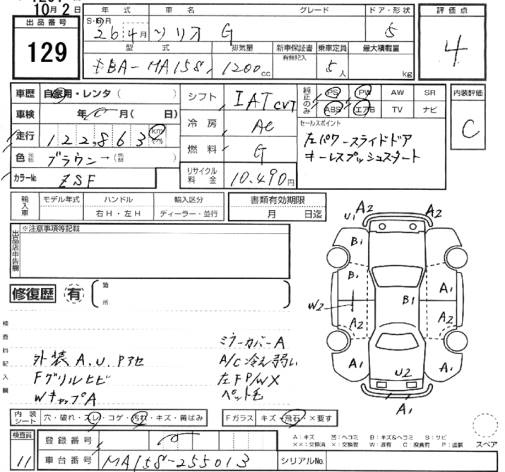 10月2日
出品番号
129
年式 車名 グレード ドア・形状
S・H・R
26年4月 ソリオ G 5
評価点
4
型式 排気量 新車保証書 乗車定員 最大積載量
有無記入
DBA-MA15S 1200cc 5人 kg
車歴 自家用・レンタ
車検 年 0月( 日)
走行 122,863 Km
色 元色 ブラウン→(色替)
カラーNo. ZSF
シフト IAT CVT
冷房 AC
燃料 G
リサイクル料金 10,490円
純正のみ PS PW AW SR
ABS エアB TV ナビ
内装評価
C
セールスポイント
左パワースライドドア
キーレスプッシュスタート
輸入車 モデル年式 ハンドル 輸入区分
右H・左H ディーラー・並行
書類有効期限
月 日迄
出品店申告欄
※注意事項等記載
修復歴 有 箇所
検査員記入欄
外装A,U,Pアセ
Fグリルヒビ
WキャップA
ミラーカバーA
A/C冷え弱い
左FP/WX
ペット毛
A2 U1 A2
B1 A1
A2
W2 B1
A2 A2
A1 A1
U2
A1
スペア
内装シート 穴・破れ・スレ・コゲ・汚れ・キズ・黄ばみ
Fガラス キズ・飛石・×要す
A:キズ 凹:ヘコミ B:キズ&ヘコミ S:サビ
××:交換済 ×:交換要 W:波有 C:腐食有 P:塗劣
検査員 11
登録番号
車台番号 MA15S-255013
シリアルNo.